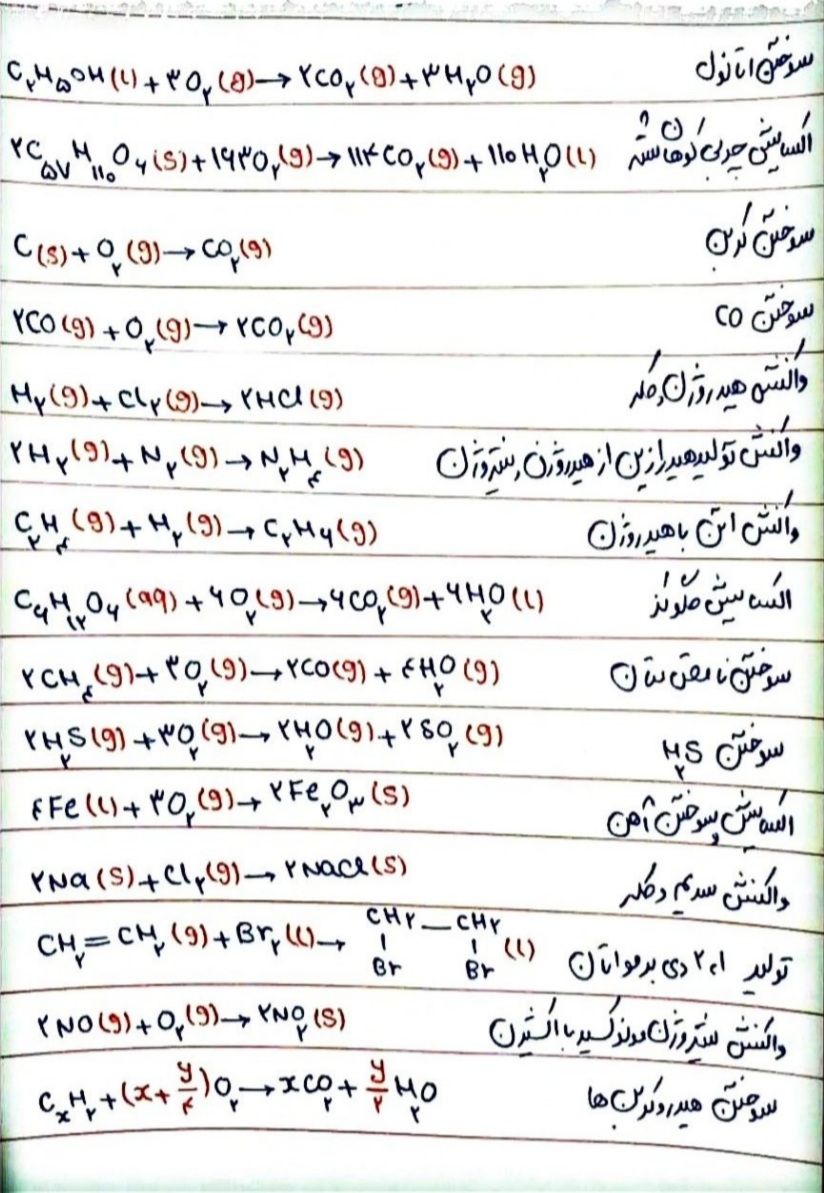 سوختن اتانول C₂H₅OH(l) + ۳O₂(g) → ۲CO₂(g) + ۳H₂O(g)
اکسایش چربی کوهان شتر ۲C₅₇H₁₁₀O₆(s) + ۱۶۳O₂(g) → ۱۱۴CO₂(g) + ۱۱۰H₂O(l)
سوختن کربن C(s) + O₂(g) → CO₂(g)
سوختن CO ۲CO(g) + O₂(g) → ۲CO₂(g)
واکنش هیدروژن و کلر H₂(g) + Cl₂(g) → ۲HCl(g)
واکنش تولید هیدرازین از هیدروژن و نیتروژن ۲H₂(g) + N₂(g) → N₂H₄(g)
واکنش اتن با هیدروژن C₂H₄(g) + H₂(g) → C₂H₆(g)
اکسایش گلوکز C₆H₁₂O₆(aq) + ۶O₂(g) → ۶CO₂(g) + ۶H₂O(l)
سوختن ناقص متان ۲CH₄(g) + ۳O₂(g) → ۲CO(g) + ۴H₂O(g)
سوختن H₂S ۲H₂S(g) + ۳O₂(g) → ۲H₂O(g) + ۲SO₂(g)
اکسایش و سوختن آهن ۴Fe(l) + ۳O₂(g) → ۲Fe₂O₃(s)
واکنش سدیم و کلر ۲Na(s) + Cl₂(g) → ۲NaCl(s)
تولید ۱،۲ دی برمو اتان CH₂=CH₂(g) + Br₂(l) → CH۲—CH۲ (l)
Br Br
واکنش نیتروژن مونوکسید با اکسیژن ۲NO(g) + O₂(g) → ۲NO₂(s)
سوختن هیدروکربن ها CₓH₂ + (x + y/۴)O₂ → xCO₂ + y/۲ H₂O